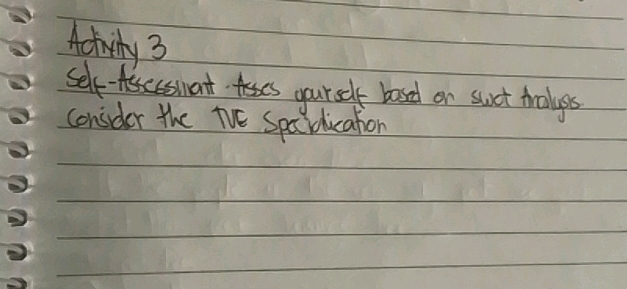 Activity 3
Self-Assessment. Asses yourself based on swot Analysis.
Consider the TVE Specialication